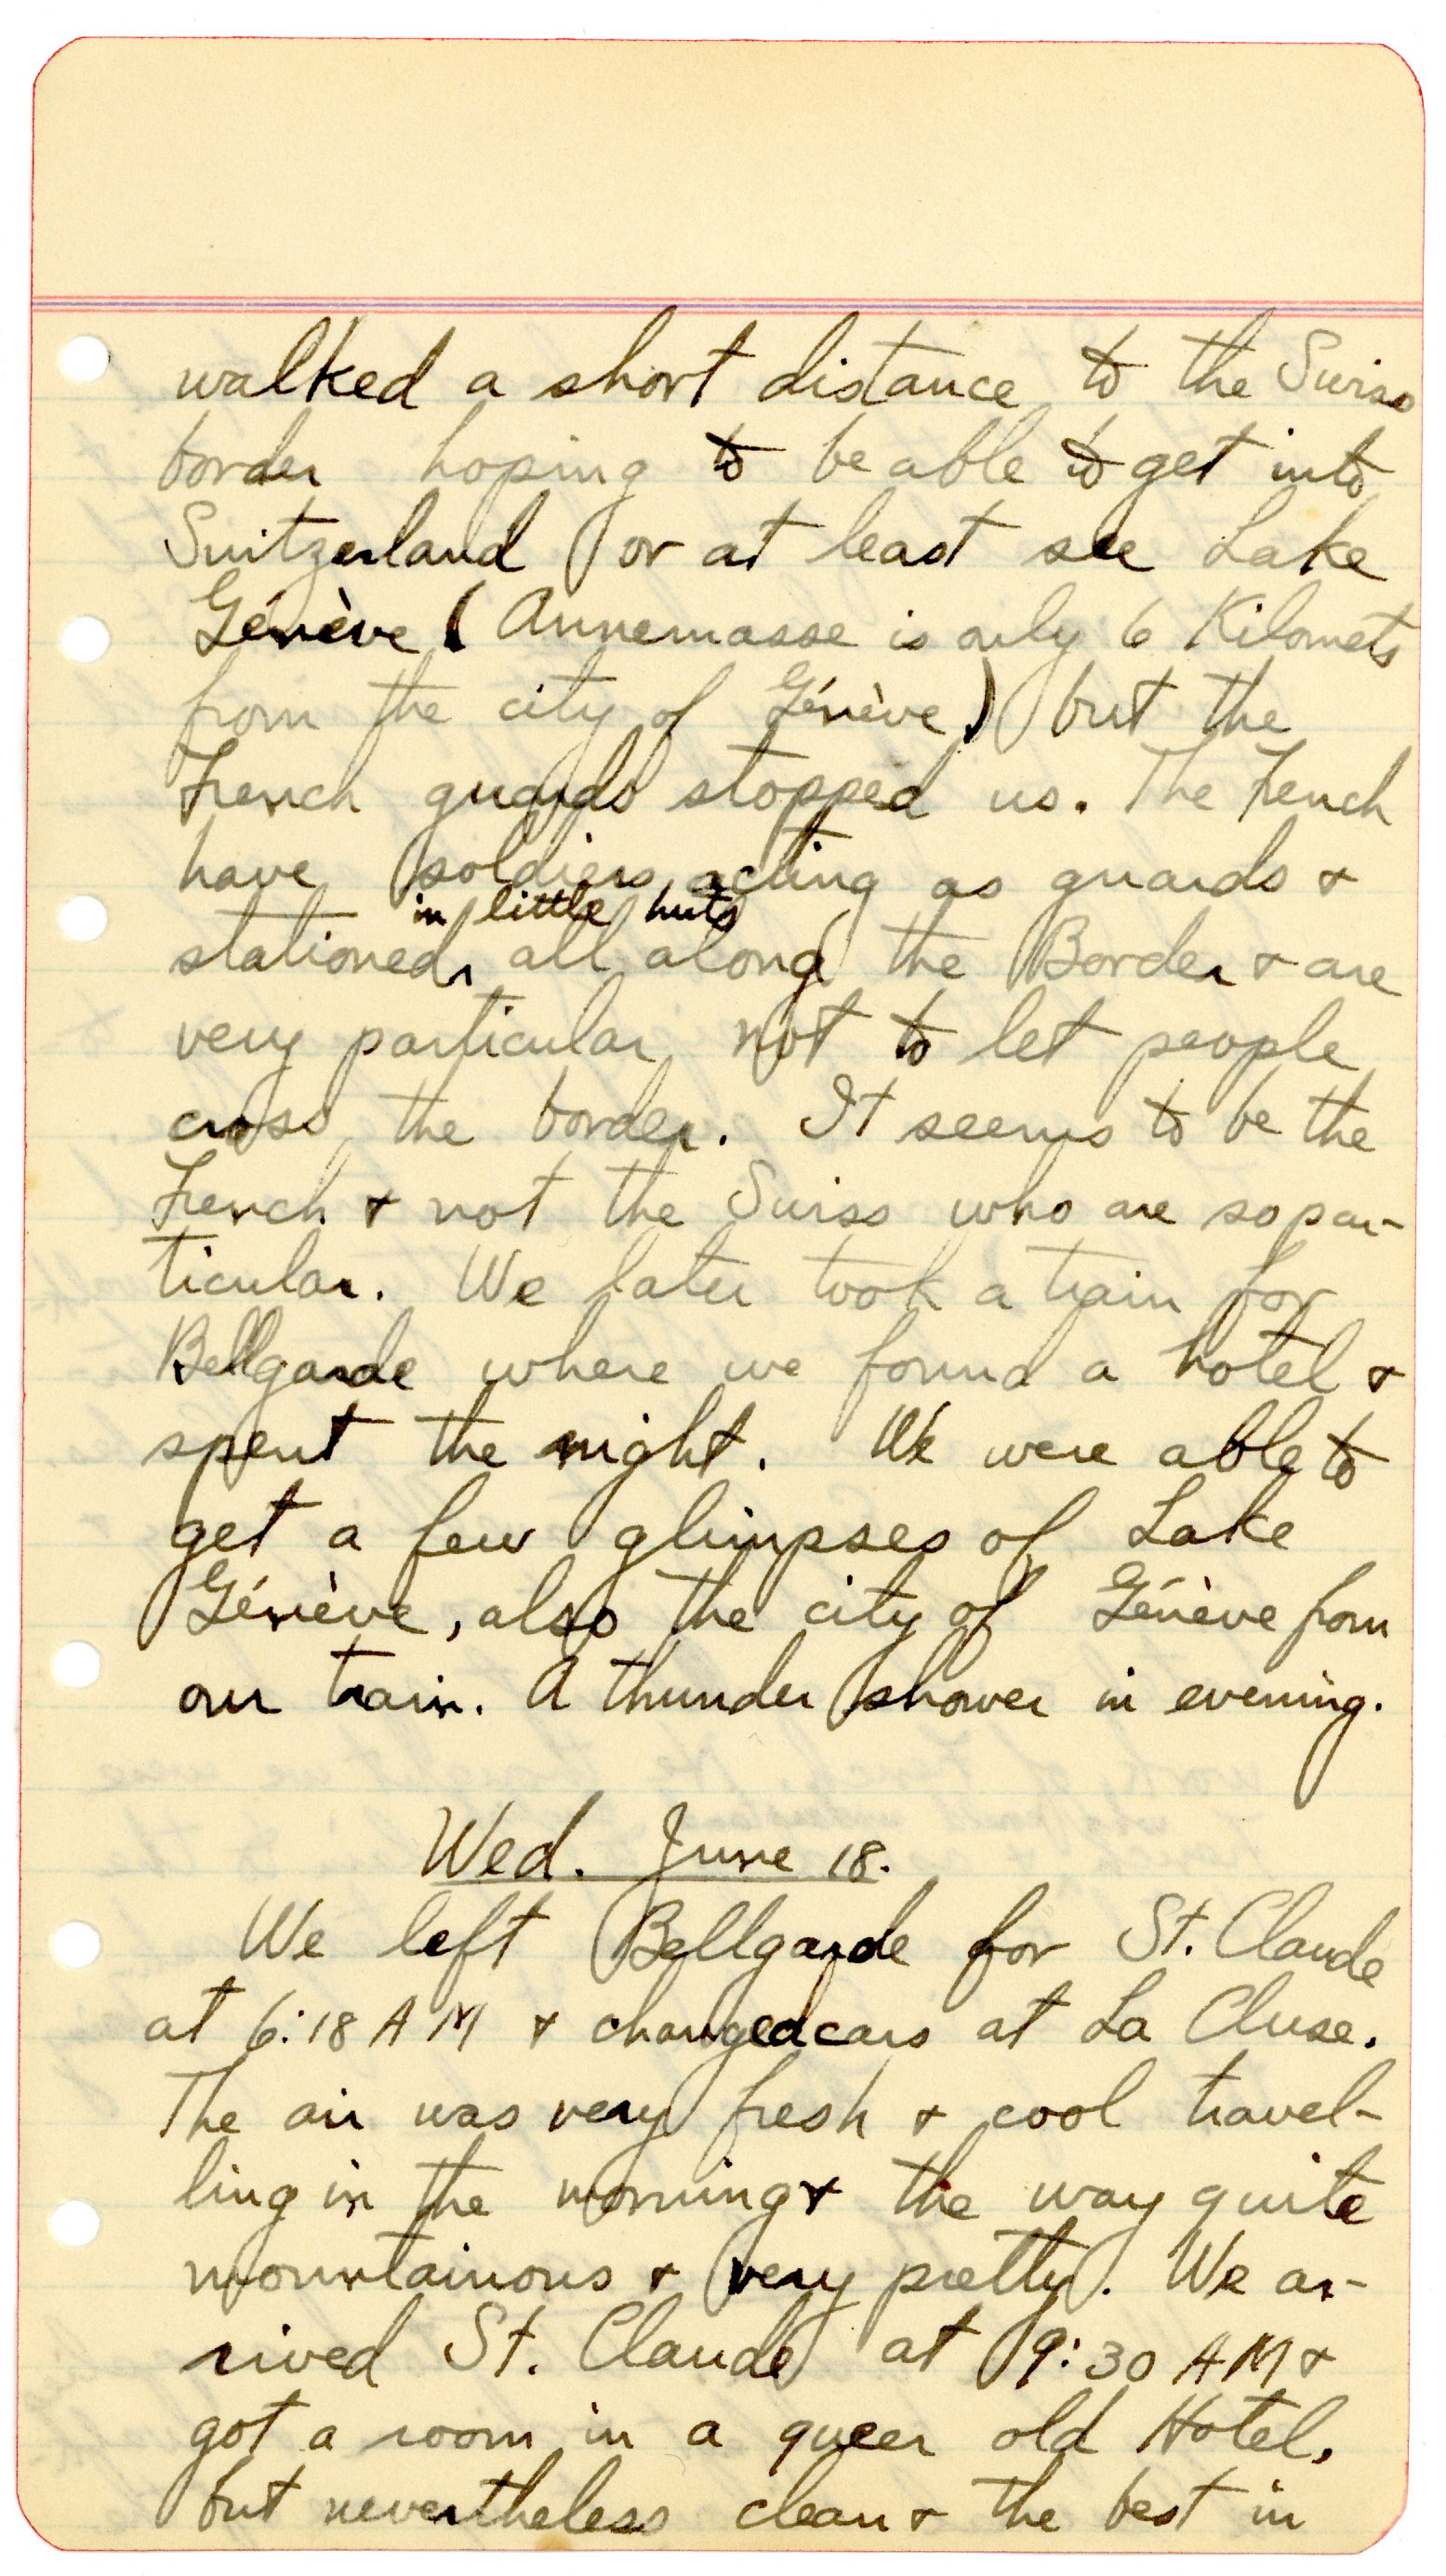 walked a short distance to the Swiss
border hoping to be able to get into
Switzerland or at least see Lake
Génève (Annemasse is only 6 Kilomets
from the city of Génève) but the
French guards stopped us. The French
have soldiers acting as guards &
in little huts
stationed all along the Border & are
very particular not to let people
cross the border. It seems to be the
French & not the Swiss who are so par-
ticular. We later took a train for
Bellgarde where we found a hotel &
spent the night. We were able to
get a few glimpses of Lake
Génève, also the city of Génève from
our train. A thunder shower in evening.
Wed. June 18.
We left Bellgarde for St. Claude
at 6:18 AM & changed cars at La Cluse.
The air was very fresh & cool travel-
ling in the morning & the way quite
mountainous & very pretty. We ar-
rived St. Claude at 9:30 AM &
got a room in a queer old Hotel,
but nevertheless clean & the best in